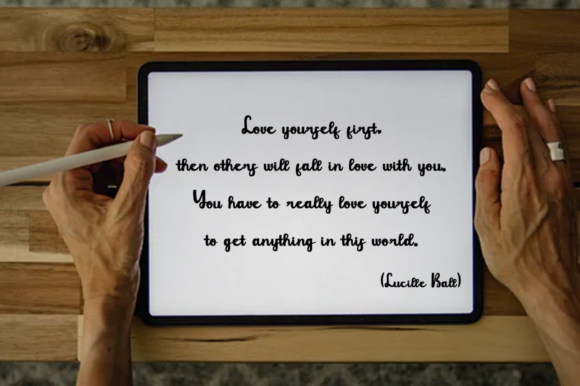 Love yourself first.
then others will fall in love with you.
You have to really love yourself
to get anything in this world.
(Lucille Ball)